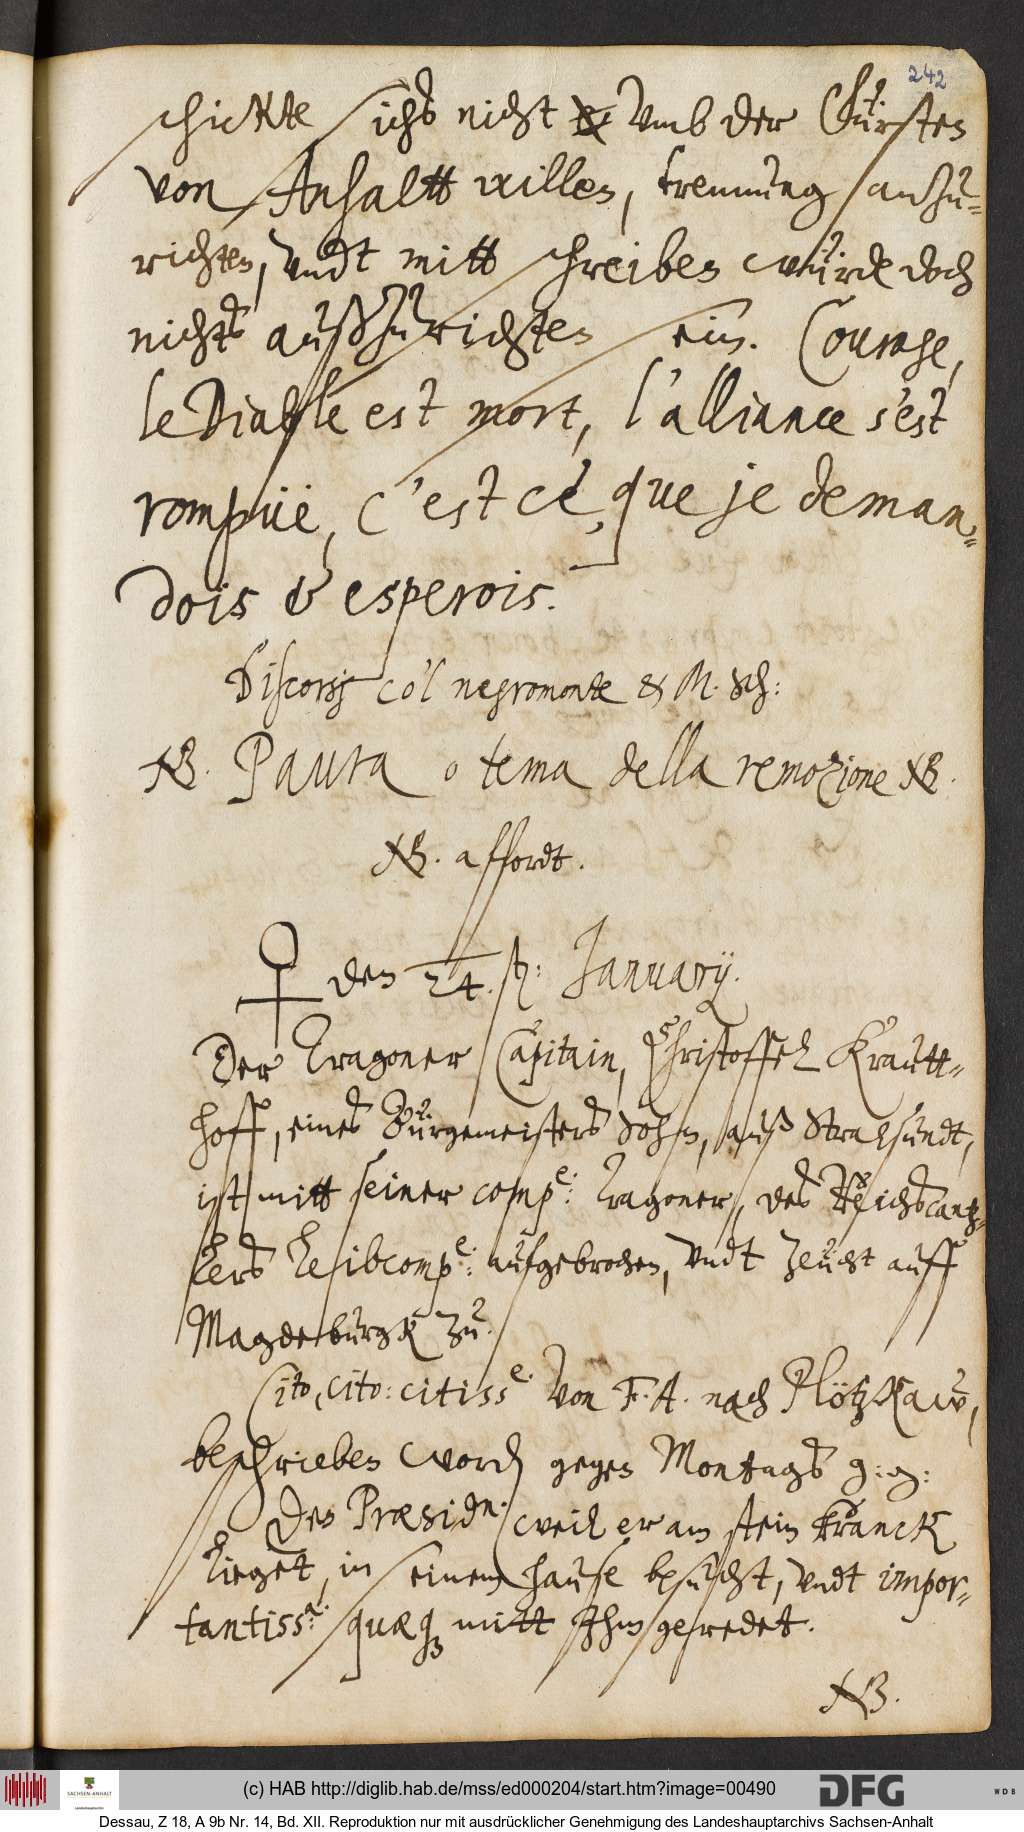 242
schickte sichs nicht umb der Fürsten
von Anhaltt willen, trennung anzu=
richten, undt mitt schreiben würde doch
nichts außzurichten sein. Courage,
le Diable est mort, l'alliance s'est
rompuë, c'est ce, que je deman=
dois & esperois.
Discorsj co'l negromonte & M. Sch:
NB. Paura o tema della remozione NB.
NB. affordt.
♀ den 24. st: January.
Der Tragoner Capitain, Christoffel Krautt=
hoff, eines Bürgemeisters Sohn, auß Stralsundt,
ist mitt seiner comp.e: Tragoner, des Reichscantz=
lers Leibcomp.e: aufgebrochen, undt zeucht auff
Magdeburgk zu.
Cito, cito: citiss.e: von F. A. nach Plötzkaw,
beschrieben word gegen Montags g: g:
Den Præsid.n. weil er am stein kranck
lieget, in seinem hause besucht, undt impor=
tantiss.a: quæq mitt Ihm geredet.
NB.
(c) HAB http://diglib.hab.de/mss/ed000204/start.htm?image=00490
SACHSEN-ANHALT
Landeshauptarchiv
DFG
WDB
Dessau, Z 18, A 9b Nr. 14, Bd. XII. Reproduktion nur mit ausdrücklicher Genehmigung des Landeshauptarchivs Sachsen-Anhalt